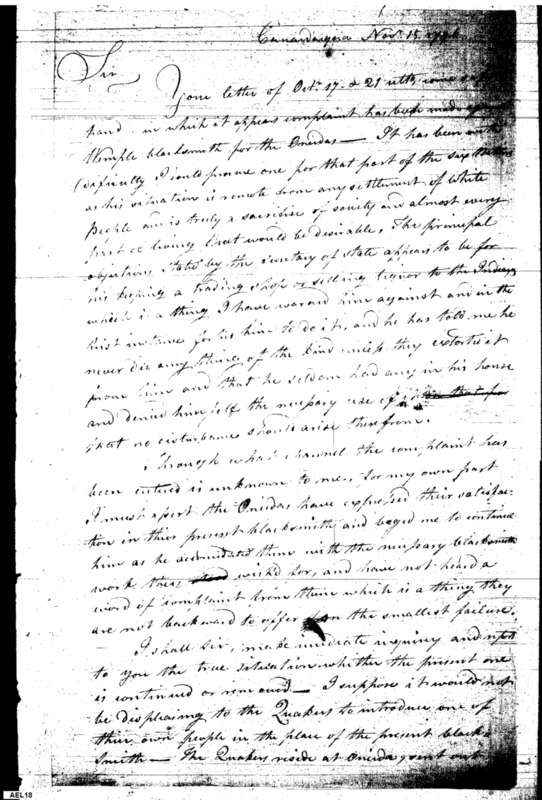 Canandaigua Novr 15 1796
Sir
Your letter of Octr 17 & 21 ulto came safe
hand in which it appears complaint has been made against
Wemple blacksmith for the Oneidas — It has been with
difficulty I could procure one for that part of the six Nations
as his situation is remote from any settlement of White
people and is truly a sacrifice of society and almost every
of living that would be desirable, The principal
objections stated by the secretary of state appears to be for
his keeping a trading shop or selling liquor to the Indians
which is a thing I have warned him against and in the
first instance forbid him to do it, and he has told me he
never did any thing of the kind unless they extorted it
from him and that he seldom had any in his house
and denied himself the necessary use of it
that no disturbance should arise therefrom.
Through what channel the complaint has
been entered is unknown to me, for my own part
I must assert the Oneidas have expressed their satisfac-
tion in their present blacksmith and beged me to continue
him as he accomodated them with the necessary blacksmith
work they wish'd for, and have not heard a
word of complaint from them which is a thing they
are not backward to offer on the smallest failure.
I shall Sir, make mediate inquiry and report
to you the true situation whither the present one
is continued or removed — I suppose it would not
be displeasing to the Quakers to introduce one of
their own people in the place of the present black-
smith — The Quakers reside at Oneida, sent out
AEL18